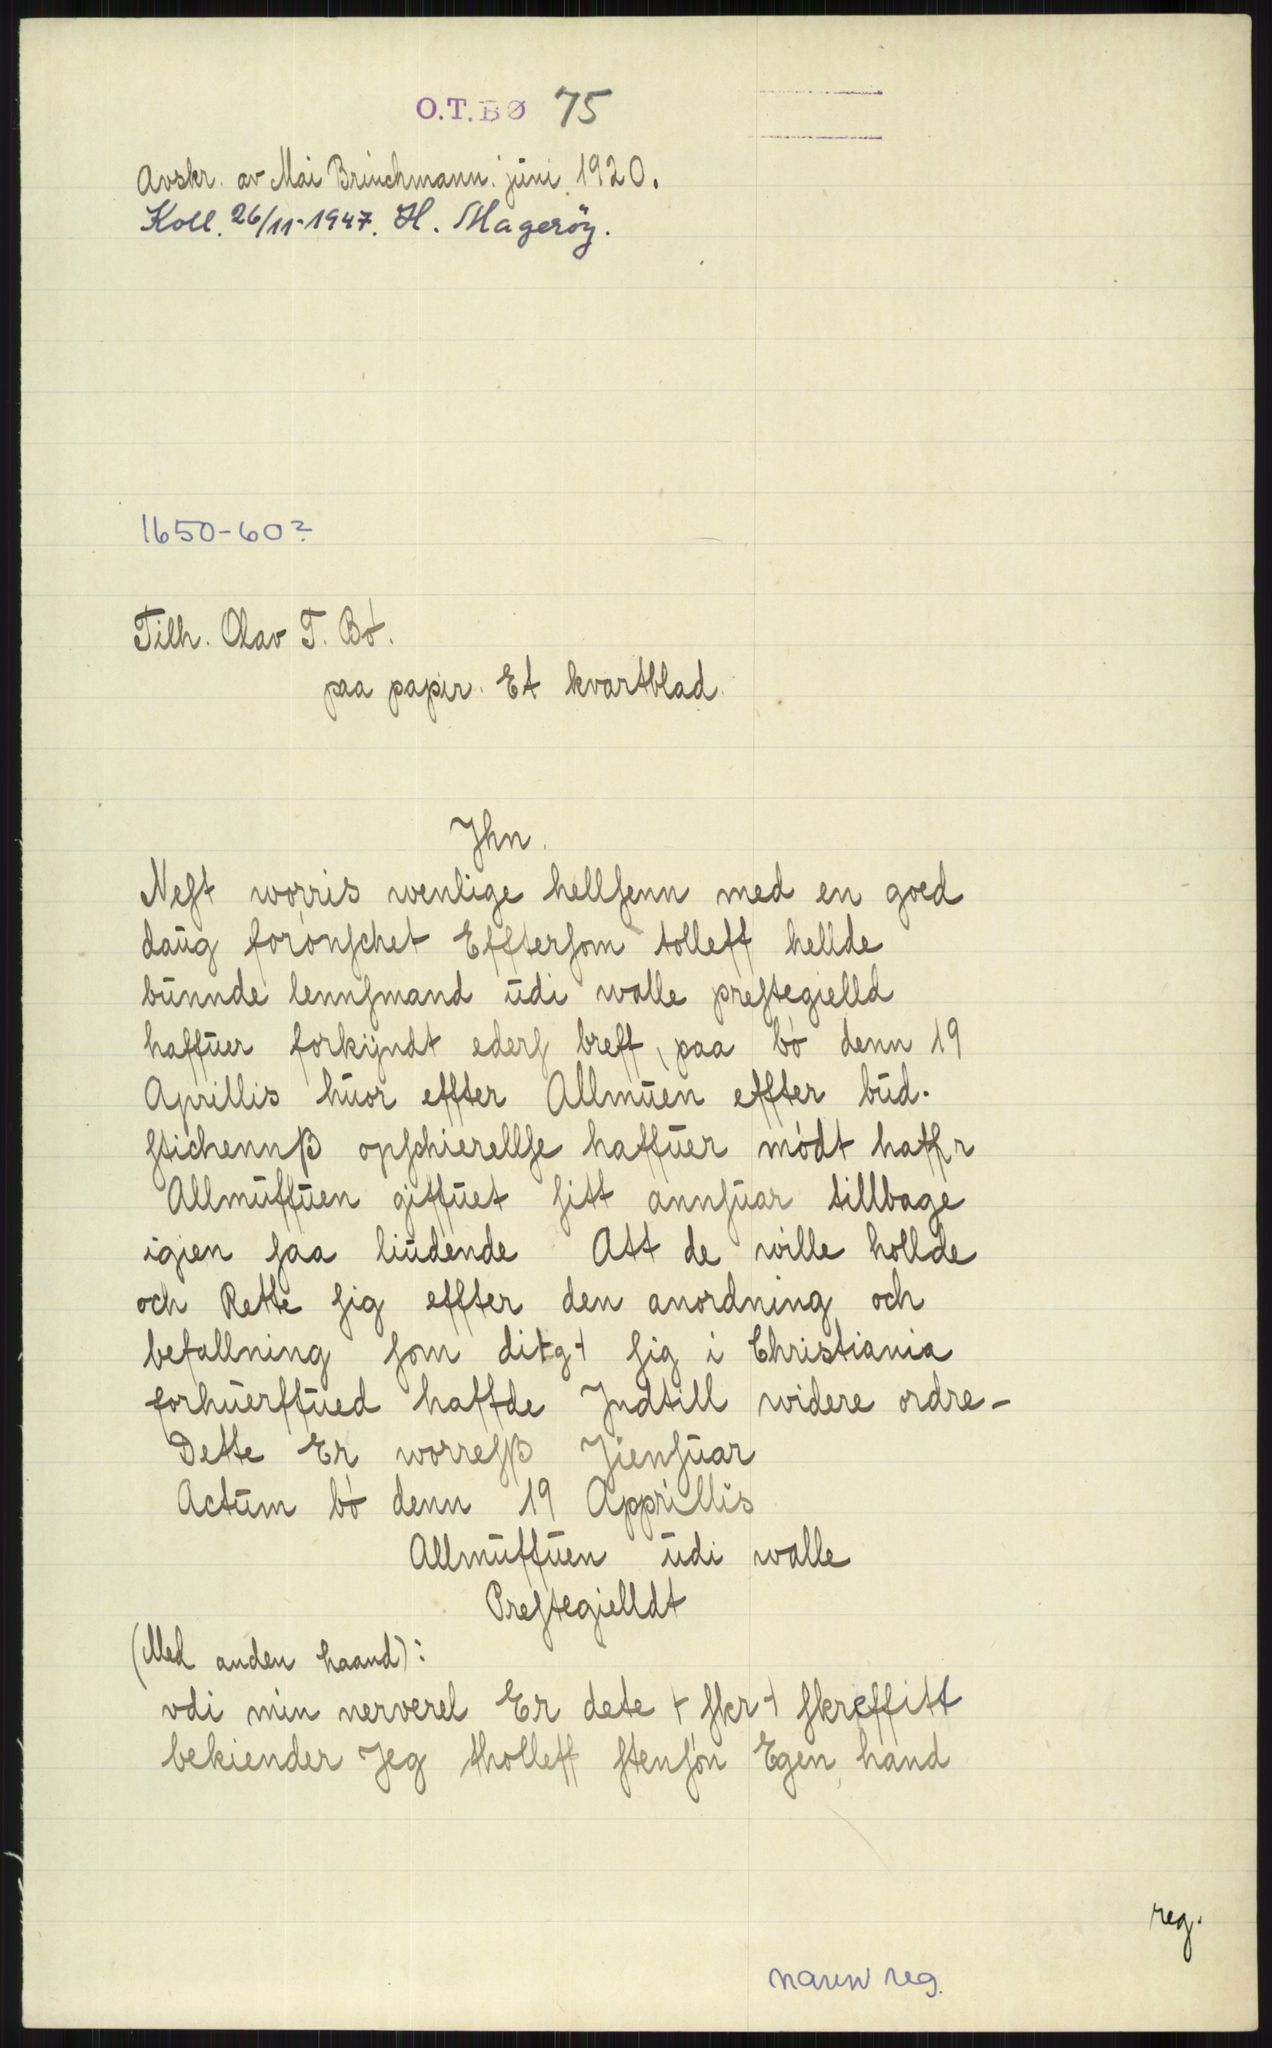 O.T.BØ 75
Avskr. av Mai Brinchmann. juni 1920.
Koll. 26/11-1947. H. Magerøy.
1650-60?
Tilh. Olav T. Bø.
paa papir. Et kvartblad.
Jhn.
Neſt worris wenlige hellſenn med en goed
daŭg forónſchet Effterſom tolleff hellde
bŭnnde lennſmand ŭdi walle preſtegielld
haffŭer forkÿndt eders breff, paa bó denn 19
Aprillis hŭor effter Allmŭen effter bŭd.
ſtichennß opſchierellſe haffŭer módt haffr
Allmŭffŭen giffŭet ſitt annſŭar tillbage
igien ſaa liŭdende Att de wille hollde
och Rette ſig effter den anordning och
befallning ſom ditgt ſig i Christiania
forhŭerffŭed haffde Jndtill widere ordre-
Dette Er worreſß Jienſŭar
Actŭm bó denn 19 Apprillis
Allmŭffŭen ŭdi walle
Preſtegielldt
(Med anden haand):
vdi min nerverel Er dete + ſkr+ ſkreffitt
bekiender Jeg tholleff ſtenſón Egen hand
reg.
navn reg.